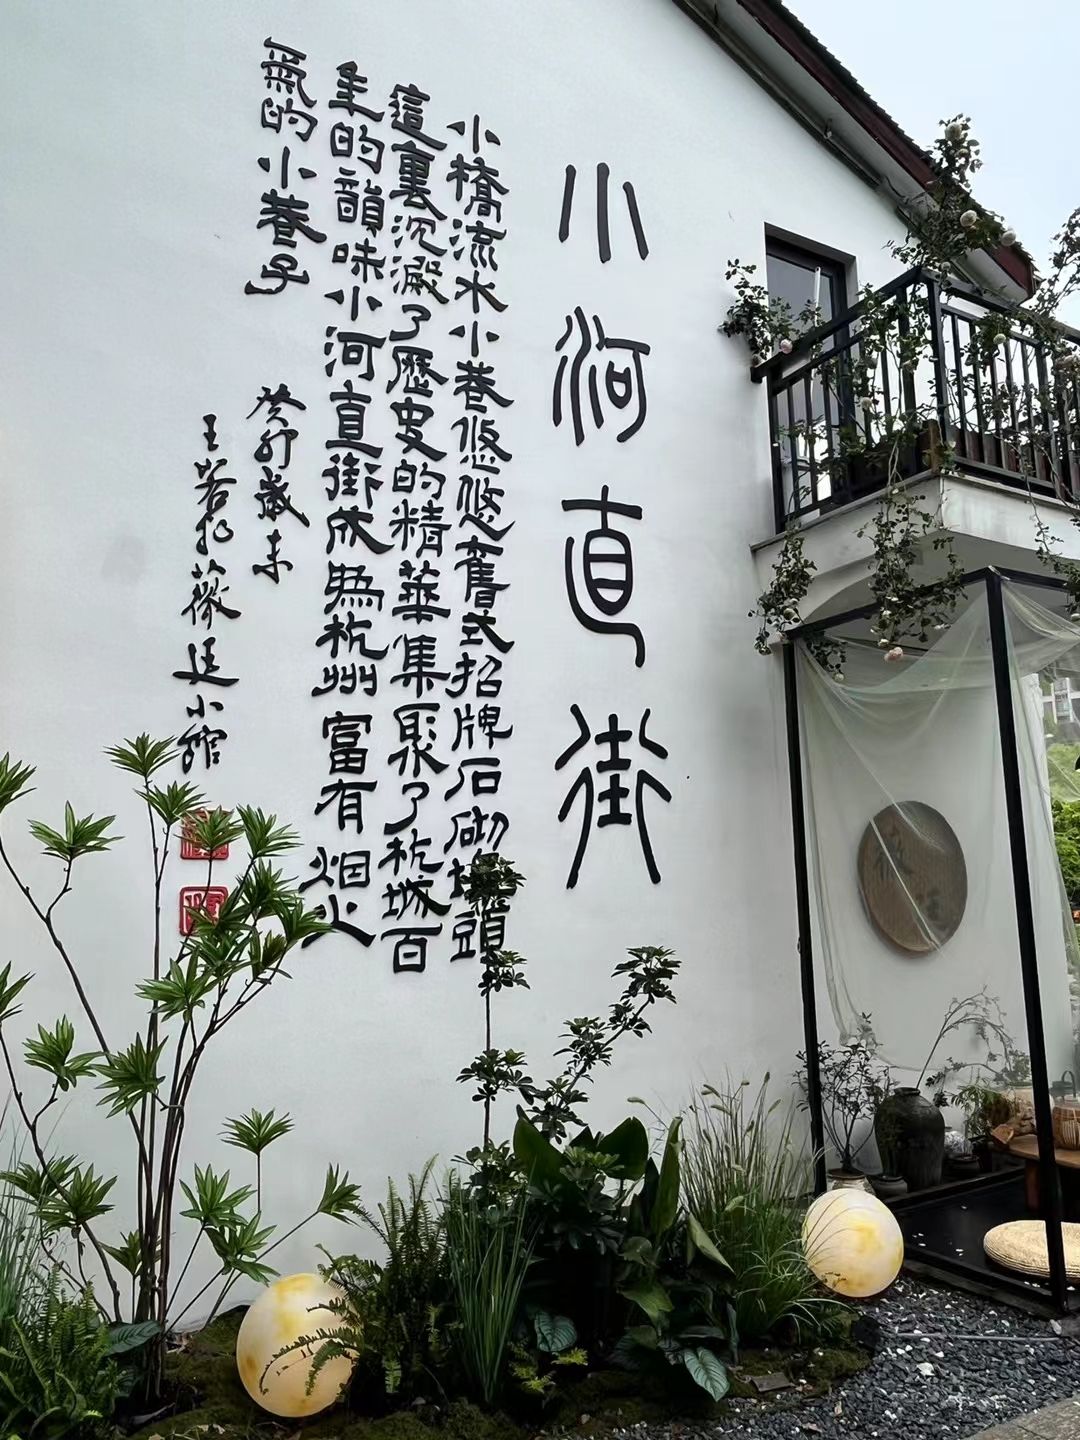 小河直街
小橋流水小巷悠悠舊式招牌石砌墻頭
這裏沉澱了歷史的精華集聚了杭城百
年的韻味小河直街成為杭州富有烟火
氣的小巷子
癸卯歲末
王若扎薇廷小館